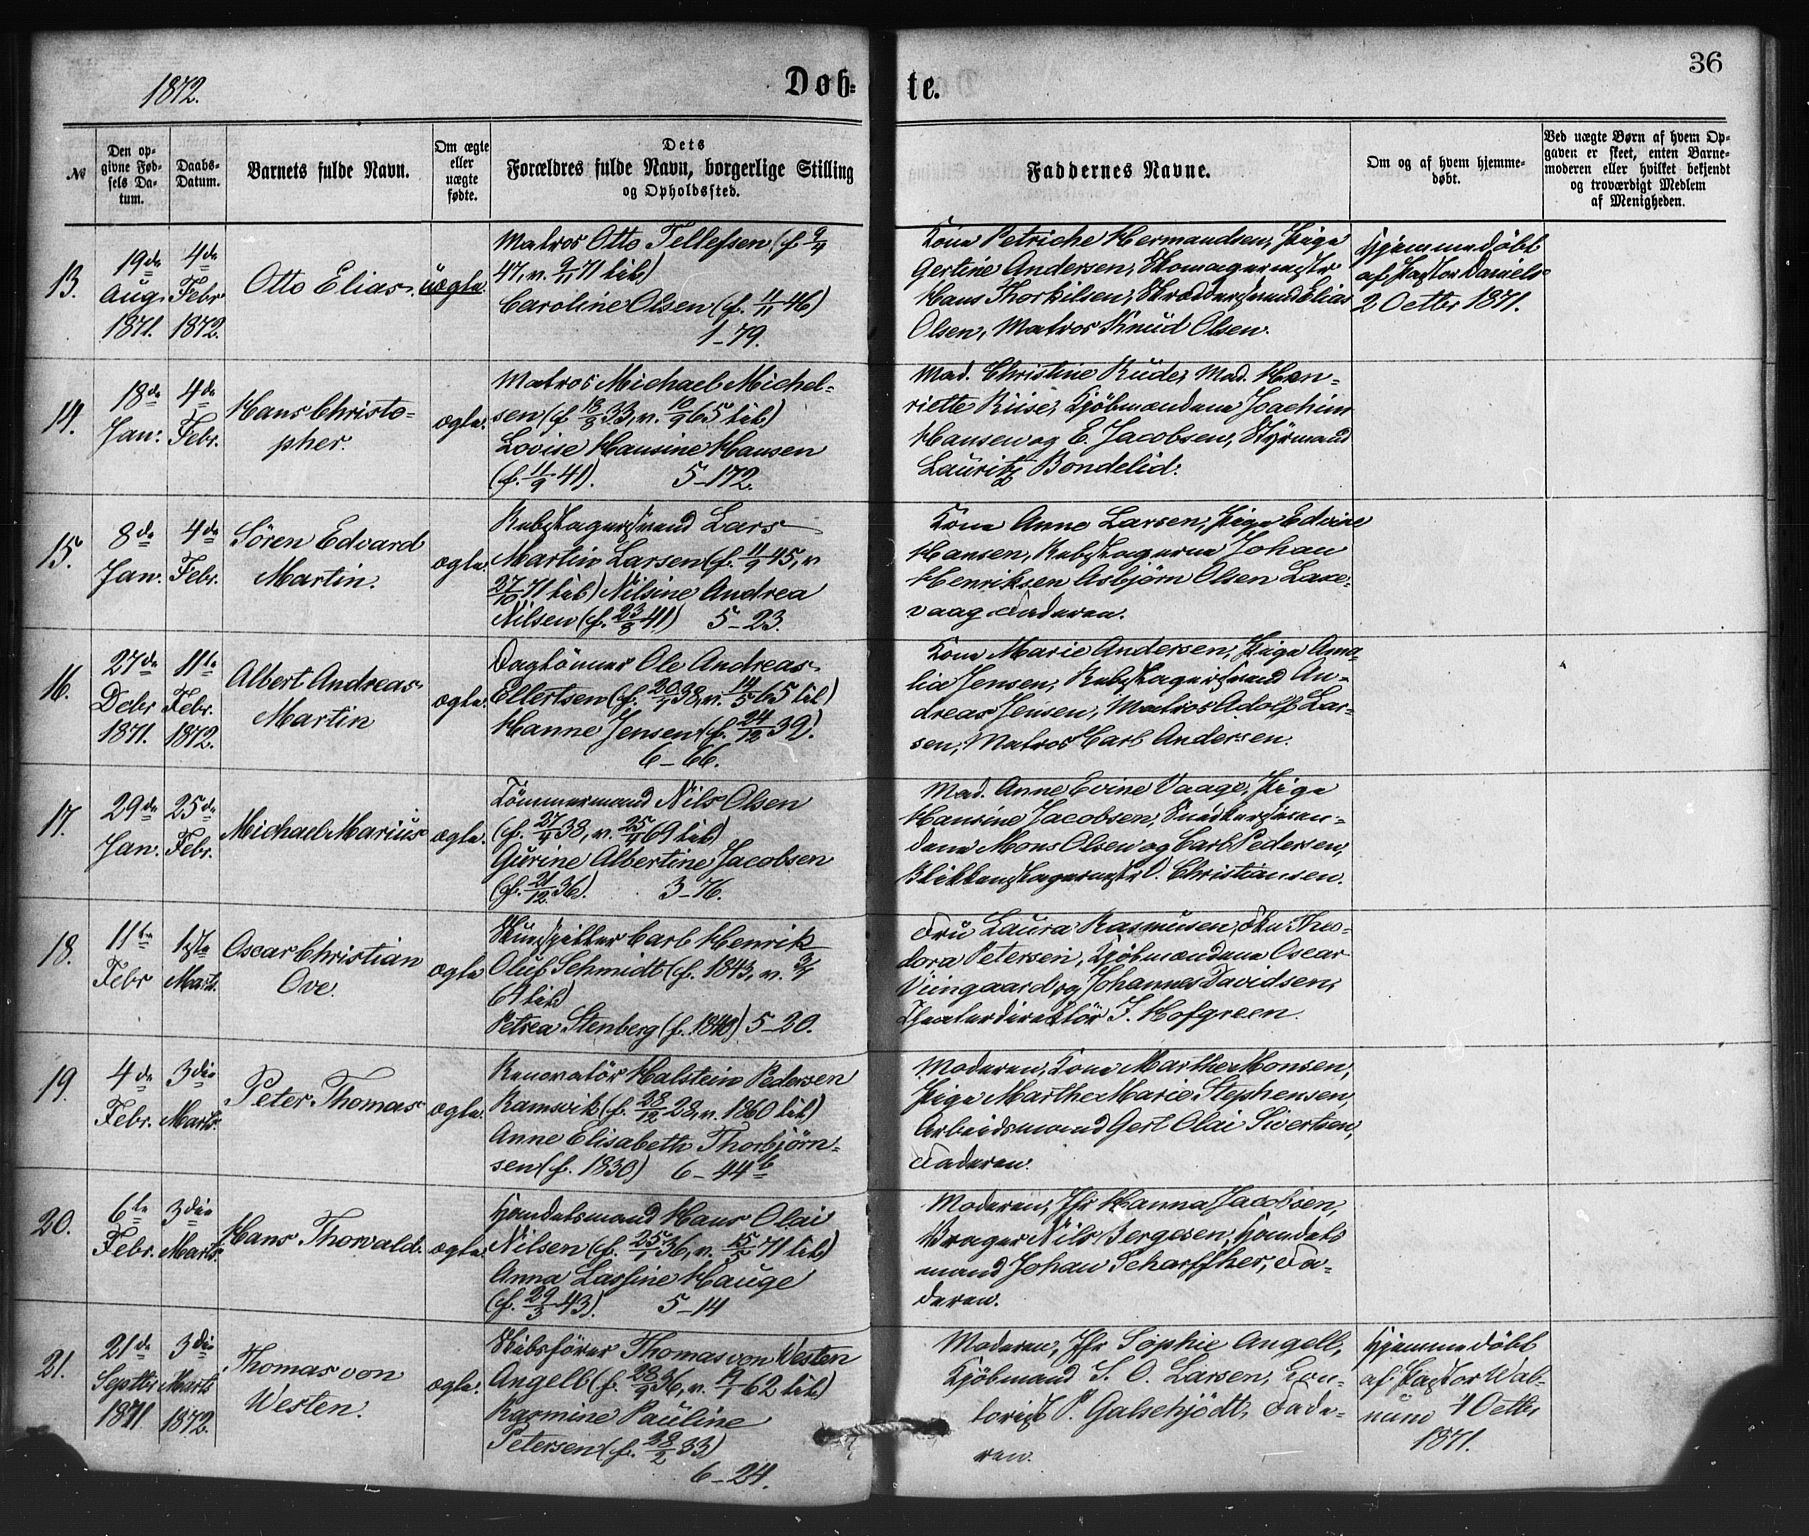 36
1872.
Døb-te.
№
Den opgivne Fødsels Datum.
Daabs-Datum.
Barnets fulde Navn.
Om ægte eller uægte fødte.
Dets
Forældres fulde Navn, borgerlige Stilling
og Opholdssted.
Faddernes Navne.
Om og af hvem hjemmedøbt.
Ved uægte Børn af hvem Opgaven er skeet, enten Barnemoderen eller hvilket bekjendt og troværdigt Medlem af Menigheden.
13.
19de Aug. 1871.
4de Febr 1872.
Otto Elias.
uægte.
Matros Otto Tellefsen (f.
47, v. 71 lib)
Caroline Olsen (f. 11/11 46)
1-79.
Kone Petriche Hermandsen, Pige
Gertine Andersen, Skomagermestr
Hans Thorkilsen, Skræddersvend Elias
Olsen, Matros Knud Olsen.
Hjemmedøbt
af Pastor Daniels-
2 Octbr 1871.
14.
18de Jan:
4de Febr.
Hans Christo-
pher.
ægte.
Matros Michael Michel-
sen (f 18/8 33, v. 10/9 65 lib)
Lovise Hansine Hansen
(f. 11/9 41). 5-172.
Mad. Christine Rude, Mad. Hen-
riette Riise, Kjöbmændene Joachim
Hansen og E. Jacobsen, Styrmand
Lauritz Bondelid.
15.
8de Jan.
4de Febr.
Sören Edvard
Martin.
ægte.
Rebslagersvend Lars
Martin Larsen (f. 11/9 45, v
27/10 71 lib) Nilsine Andrea
Nilsen (f. 23/8 41) 5-23.
Kone Anne Larsen, Pige Edvine
Hansen, Rebslagerne Johan
Henriksen Asbjörn Olsen Laxe-
vaag Faderen.
16.
27de Debr 1871.
11te Febr. 1872.
Albert Andreas
Martin
ægte.
Daglönner Ole Andreas
Ellertsen (f. 20/1 38, v. 14/5 65 lib)
Hanne Jensen (f. 24/12 39)
6-66.
Kone Marie Andersen, Pige Ama-
lia Jensen, Rebslagersvend An-
dreas Jensen, Matros Adolf Lar-
sen, Matros Carl Andersen.
17.
29de Jan.
25de Febr.
Michael Marius
ægte.
Tömmermand Nils Olsen
(f. 27/9 38, v. 25/4 69 lib)
Gurine Albertine Jacobsen
(f. 21/12 36). 3-76.
Mad. Anne Evine Vaage, Pige
Hansine Jacobsen, Snedkersven-
dene Mons Olsen og Carl Pedersen,
Blikkenslagermestr O. Christiansen.
18.
11te Febr
1ste Marts.
Oscar Christian
Ove.
ægte
Skuespiller Carl Henrik
Oluf Schmidt (f. 1843, v.
69 lib)
Petrea Stenberg (f. 1848) 5-20.
Fru Laura Rasmusen, Fru Theo-
dora Petersen, Kjöbmændene Oscar
Viingaard og Johannes Davidsen,
Theaterdirektör J. Hofgreen.
19.
4de Febr.
3die Marts.
Peter Thomas
ægte.
Renovatör Halstein Pedersen
Ramsvik (f. 28/12 28, v. 1860 lib)
Anne Elisabeth Thorbjörn-
sen (f. 1830) 6-44b
Moderen, Kone Marthe Monsen,
Pige Marthe Marie Stephensen,
Arbeidsmand Gert Olai Sivertsen,
Faderen.
20.
6te Febr.
3die Marts
Hans Thorvald.
ægte.
Handelsmand Hans Olai
Nilsen (f. 25/1 36, v. 15/5 71 lib)
Anna Lassine Hauge
(f. 29/3 43). 5-14
Moderen, Jfr Hanna Jacobsen,
Vrager Nils Bergesen, Handels
mand Johan Scharffher, Fa-
deren.
21.
21de Septbr 1871
3die Marts 1872.
Thomas von
Westen.
ægte.
Skibsförer Thomas von Westen
Angell (f. 28/9 36, v. 62 lib)
Rasmine Pauline
Petersen (f. 28/2 33)
6-24.
Moderen, Jfr Sophie Angell,
Kjöbmand S. O. Larsen, Con-
torist P. Galschjödt, Fade-
ren.
Hjemmedöbt
af Pastor Wal-
num 4 Octbr
1871.